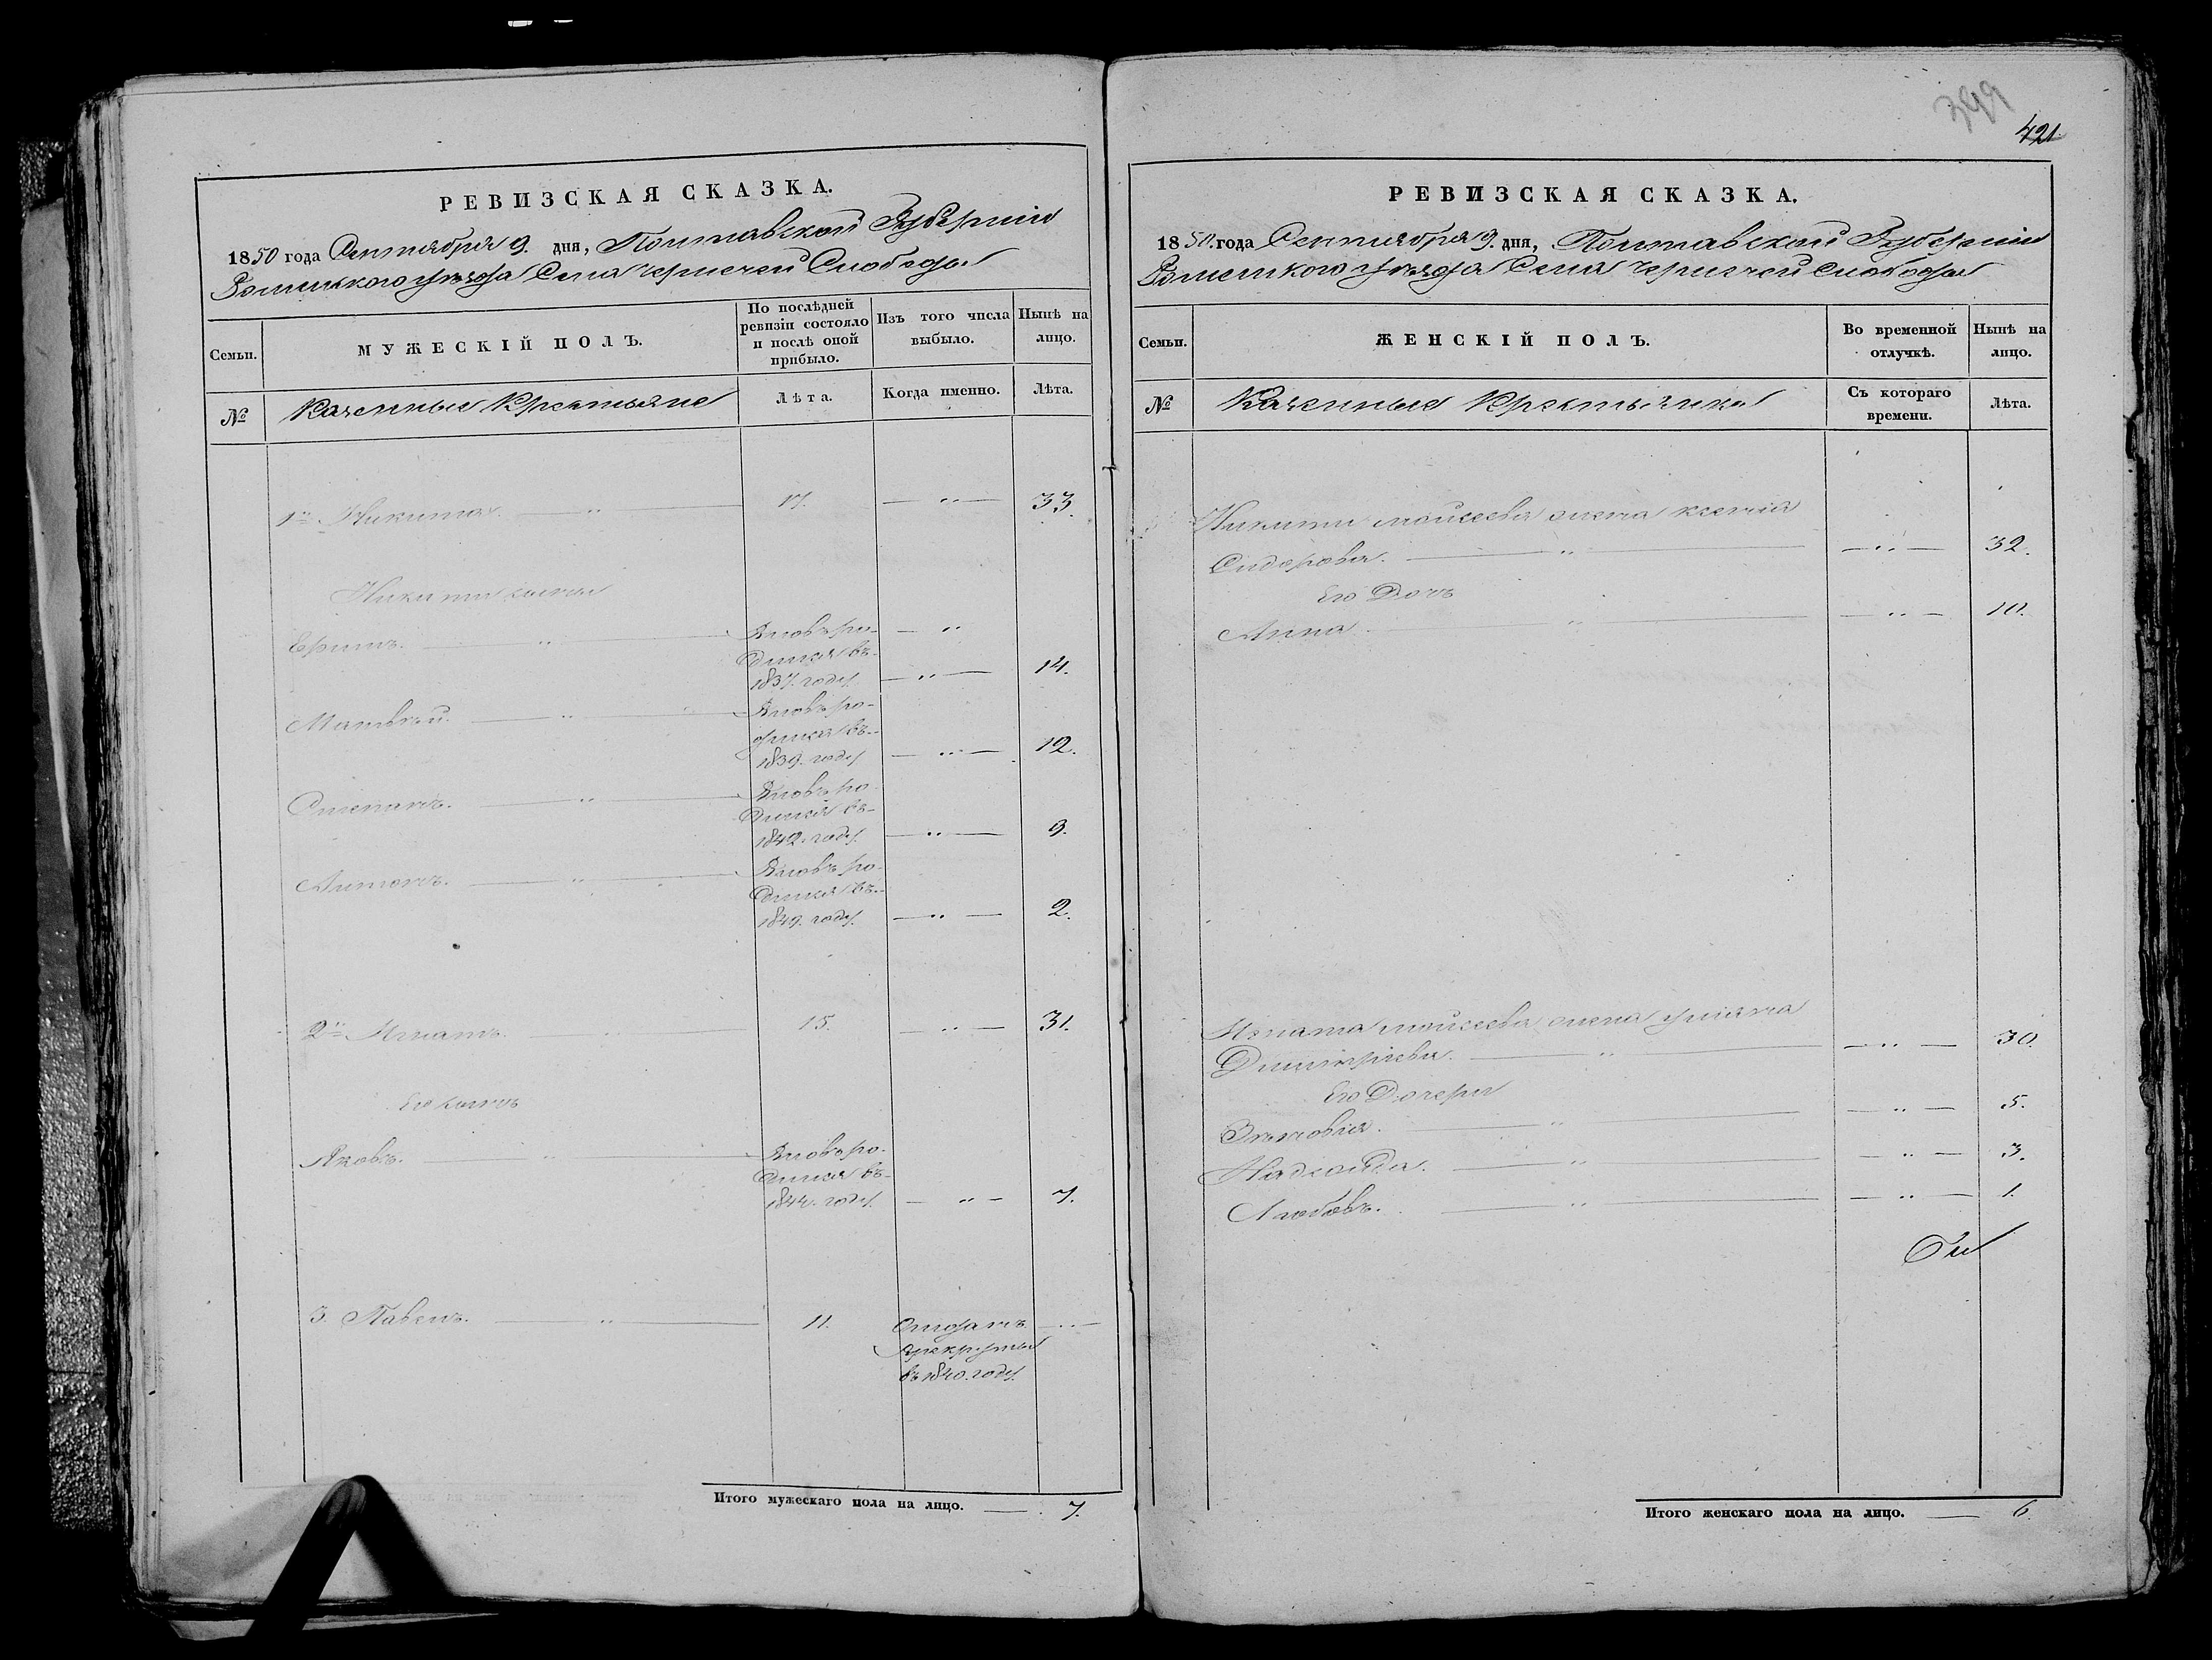 РЕВИЗСКАЯ СКАЗКА.
1850 года Сентября 9. дня, Полтавской Губернии
Роменского уѣзда Села Чернечей Слободы
Семьи.
МУЖЕСКІЙ ПОЛЪ.
По послѣдней ревизіи состояло и послѣ оной прибыло.
Изъ того числа выбыло.
Нынѣ на лицо.
№
Казенные Крестьяне
Лѣта.
Когда именно.
Лѣта.
1й Никита. 17. 33.
Никиты сыны
Вновь ро-
дился въ
1837. году 14.
Матвѣй. Вновь ро-
дился въ
1839. году 12.
Степанъ. Вновь ро-
дился въ
1842. году. 9.
Антонъ. Вновь ро-
дился въ
1849. году. 2.
2й Игнатъ. 15. 31.
Его сынъ
Яковъ. Вновь ро-
дился въ
1844. году. 7.
3. Павелъ. 11. Отданъ
в рекруты
въ 1840. году.
Итого мужескаго пола на лицо. 7.
399
421
РЕВИЗСКАЯ СКАЗКА.
1850. года Сентября 9. дня, Полтавской Губернии
Роменского уѣзда Села Чернечей Слободы
Семьи.
ЖЕНСКІЙ ПОЛЪ.
Во временной отлучкѣ.
Нынѣ на лицо.
№
Казенные Крестьянки
Съ котораго времени.
Лѣта.
Никиты Моисеева жена Ксенія
Сидорова. 32.
Его Дочь
Анна 10.
Игната Моисеева жена Уліана
Димитріева. 30.
Его Дочери
Зѣновія. 5.
Надежда. 3.
Любовь. 1.
Итого женскаго пола на лицо. 6.